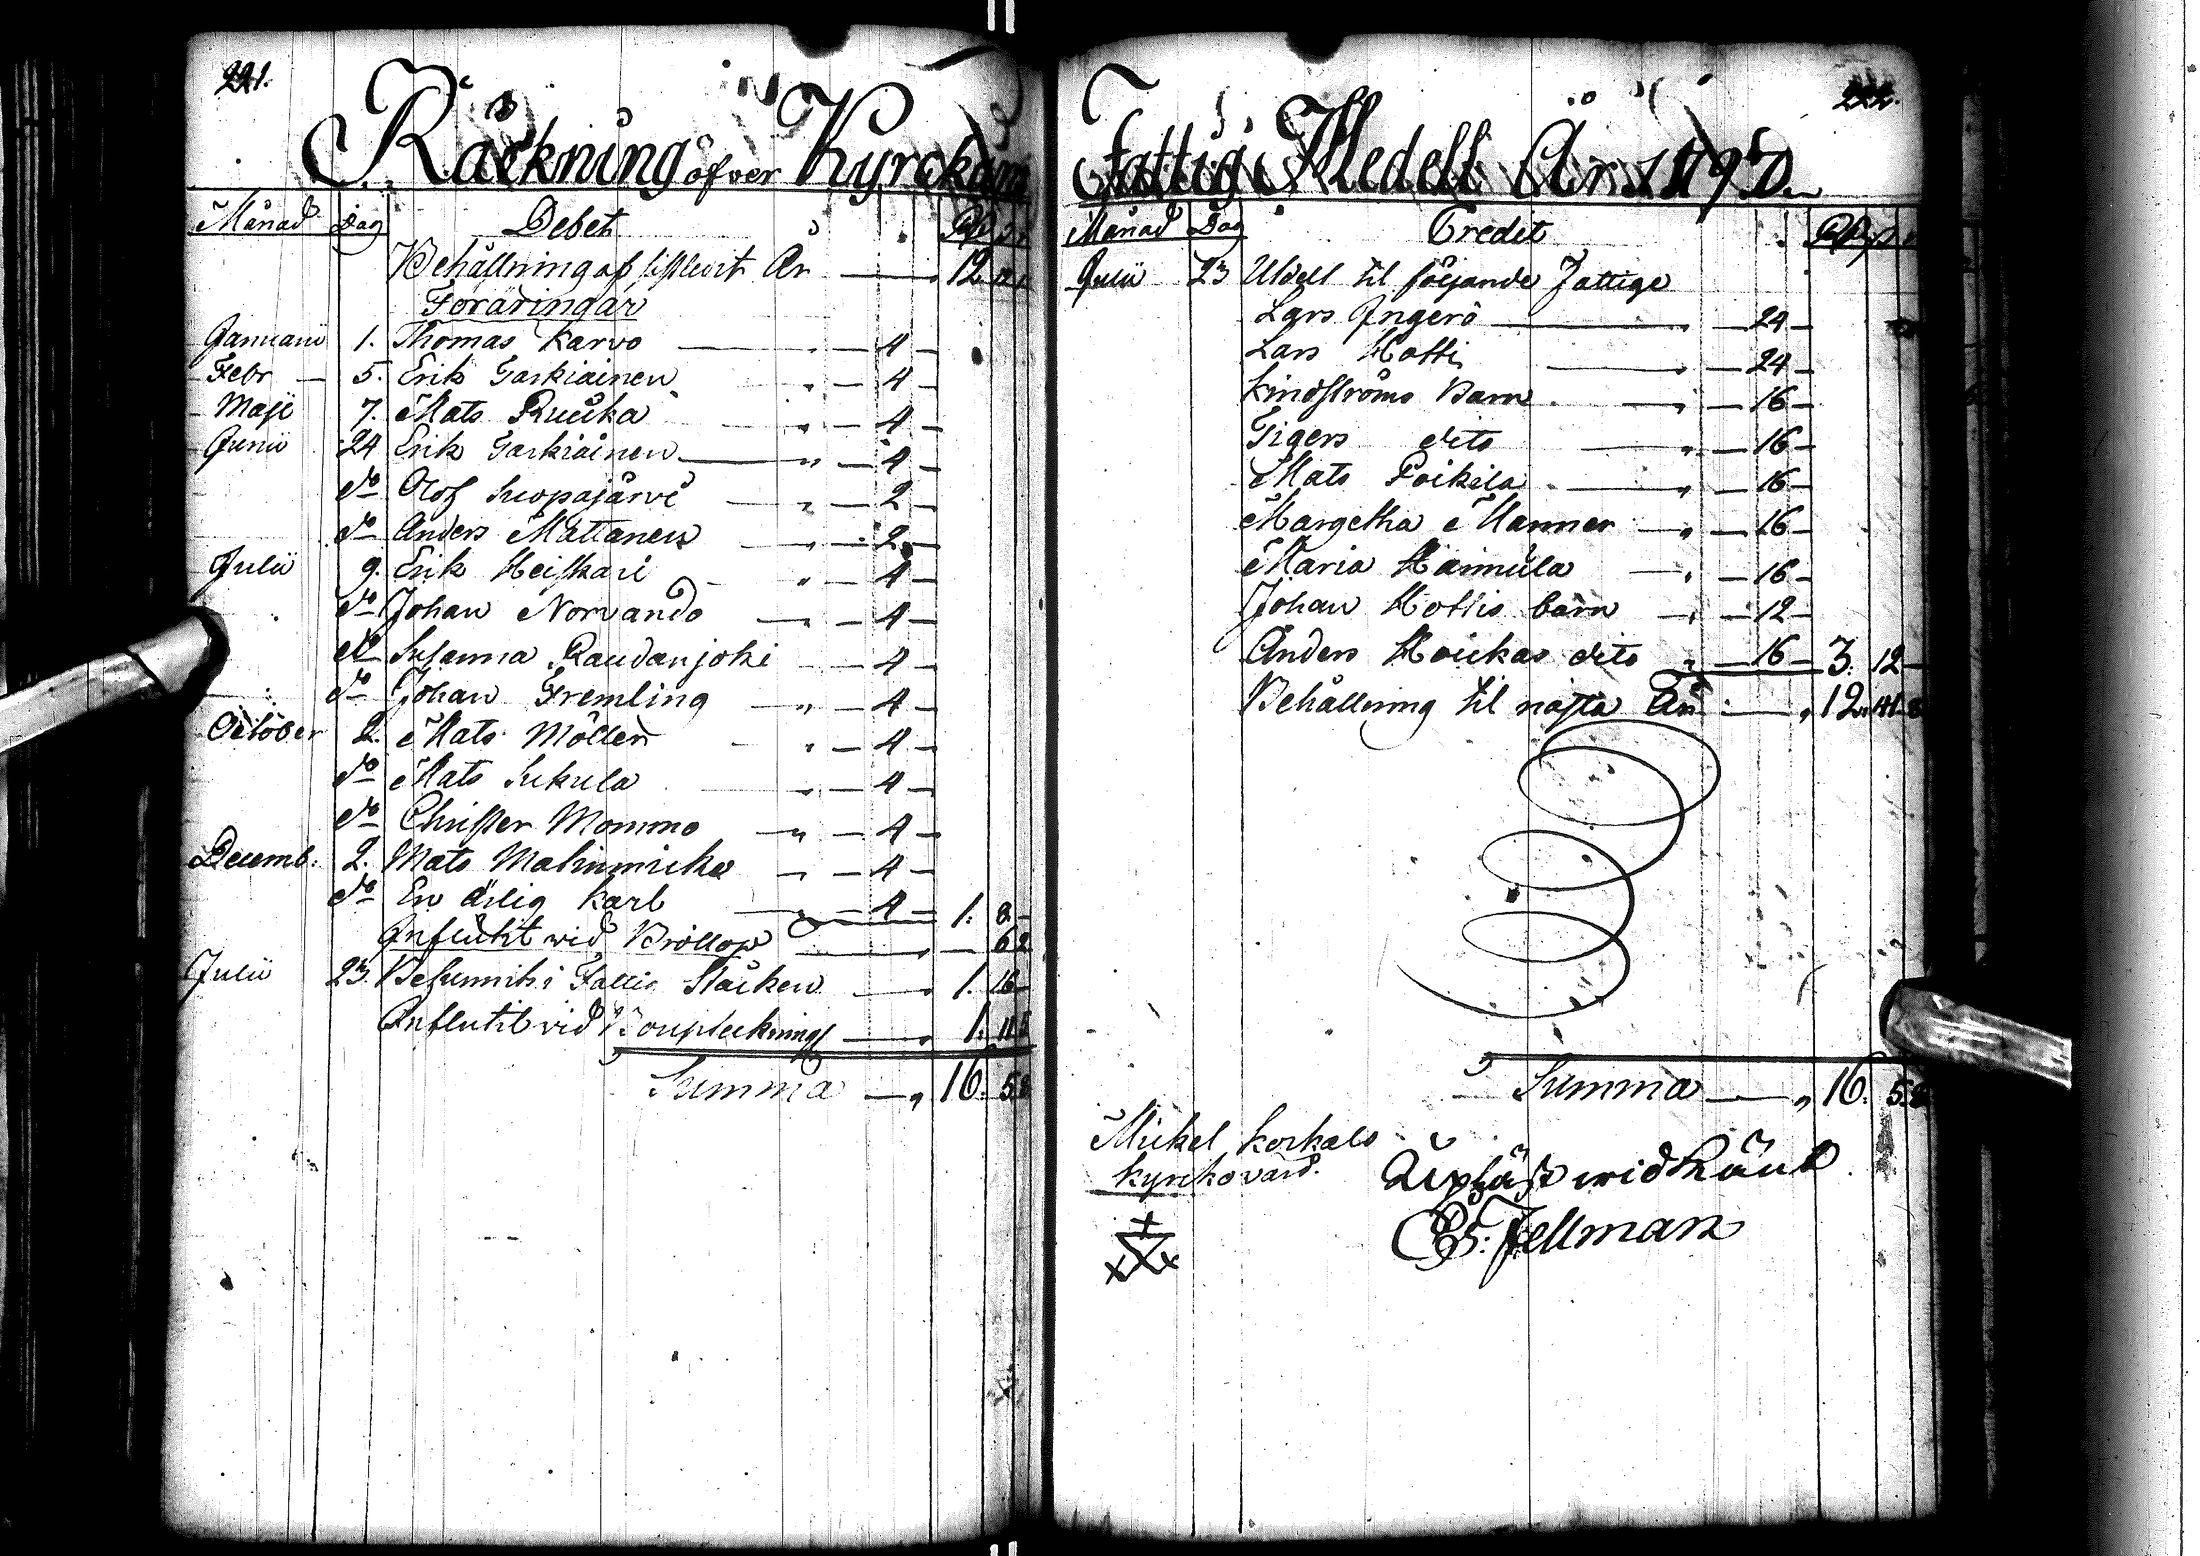 221.
Räckning öfver Kyrckans
Månad Dag Debet
Behållning af sistledit År 12.
Foräringar
Januarii 1. Thomas Karvo 4
Febr 5. Erik Garkiainen 4
Maji 7. Mats Ruuka 4
Junii 24 Erik Garkiainen 4
do Olof Suopajärvi 2
do Anders Mattanen 2
Julii 9. Erik Heiskari 4
do Johan Norvando 4
do Susanna Raudanjoki 4
do Johan Gremling 4
October 2. Mats Möller 4
do Mats Sukula 4
do Christer Mommo 4
Decemb: 2. Mats Matinmicka 4
do En ärlig Karl 4 1. 8
Influtit wid Bröllop 6 2
Julii 23. Befunnits i Fattig Stäcken 1. 16
Influtit vid Bouptecknings 1.
Summa 16. 5.8
222.
Fattig Medell År
Månad Dag Credit
Julii 23 Utdelt til följande Fattige
Lars Ingerö 24
Lars Hotti 24
Lindströms Barn 16
Tigers dito 16
Mats Poikila 16
Margetha Manner 16
Maria Hannula 16
Johan Hottis barn 12
Anders Houkas dito 16 3. 12
Behållning til nästa År 12. 41.8
Summa 16. 5.8
Mickel Korkalo
Kyrckovärd.
Upläst widkänt
E: Fellman